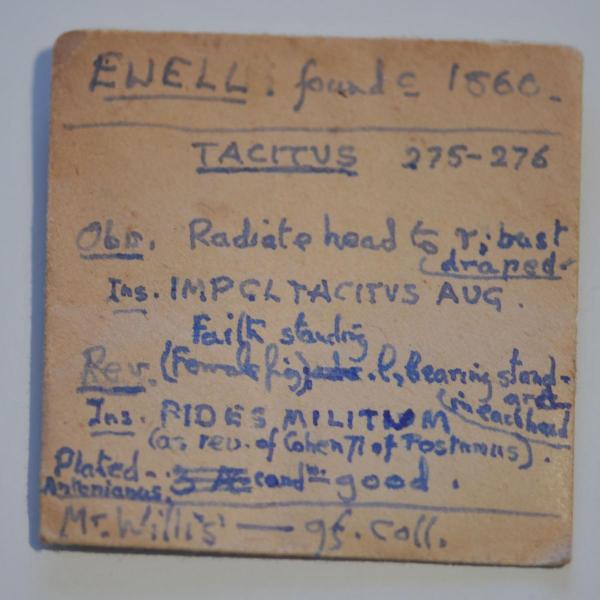 EWELL. found c 1860.
TACITUS 275-276
Obv. Radiate head to r; bust
draped.
Ins. IMP CL TACITUS AUG.
Faith standing
Rev. (Female fig) l, bearing stand-
ard
in each hand
Ins. FIDES MILITUM
(as rev. of Cohen 71 of Postumus).
Plated - cond = good.
Antonianus.
Mr. Willis' — coll.